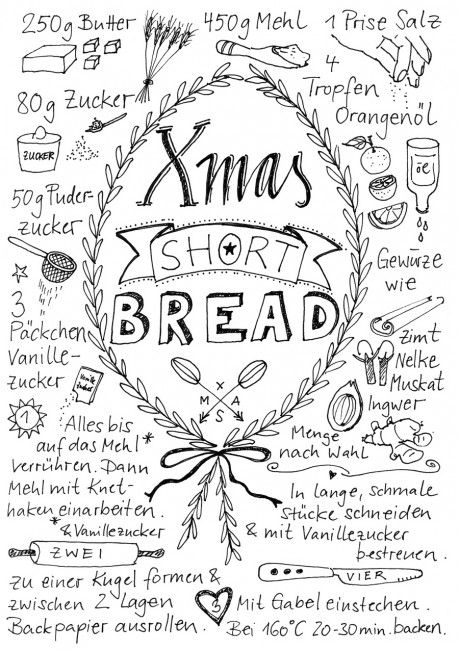 250g Butter
450g Mehl
1 Prise Salz
80g Zucker
ZUCKER
4
Tropfen
Orangenöl
öl
50g Puder-
zucker
3
Päckchen
Vanille-
zucker
Vanille
zucker
Xmas
SHORT
BREAD
X
M A
S
Gewürze
wie
Zimt
Nelke
Muskat
Ingwer
Menge
nach Wahl
1
Alles bis
auf das Mehl*
verrühren. Dann
Mehl mit Knet-
haken einarbeiten.
*& Vanillezucker
ZWEI
zu einer Kugel formen &
zwischen 2 Lagen
Backpapier ausrollen.
3
Mit Gabel einstechen.
Bei 160°C 20-30 min. backen.
VIER
In lange, schmale
Stücke schneiden
& mit Vanillezucker
bestreuen.